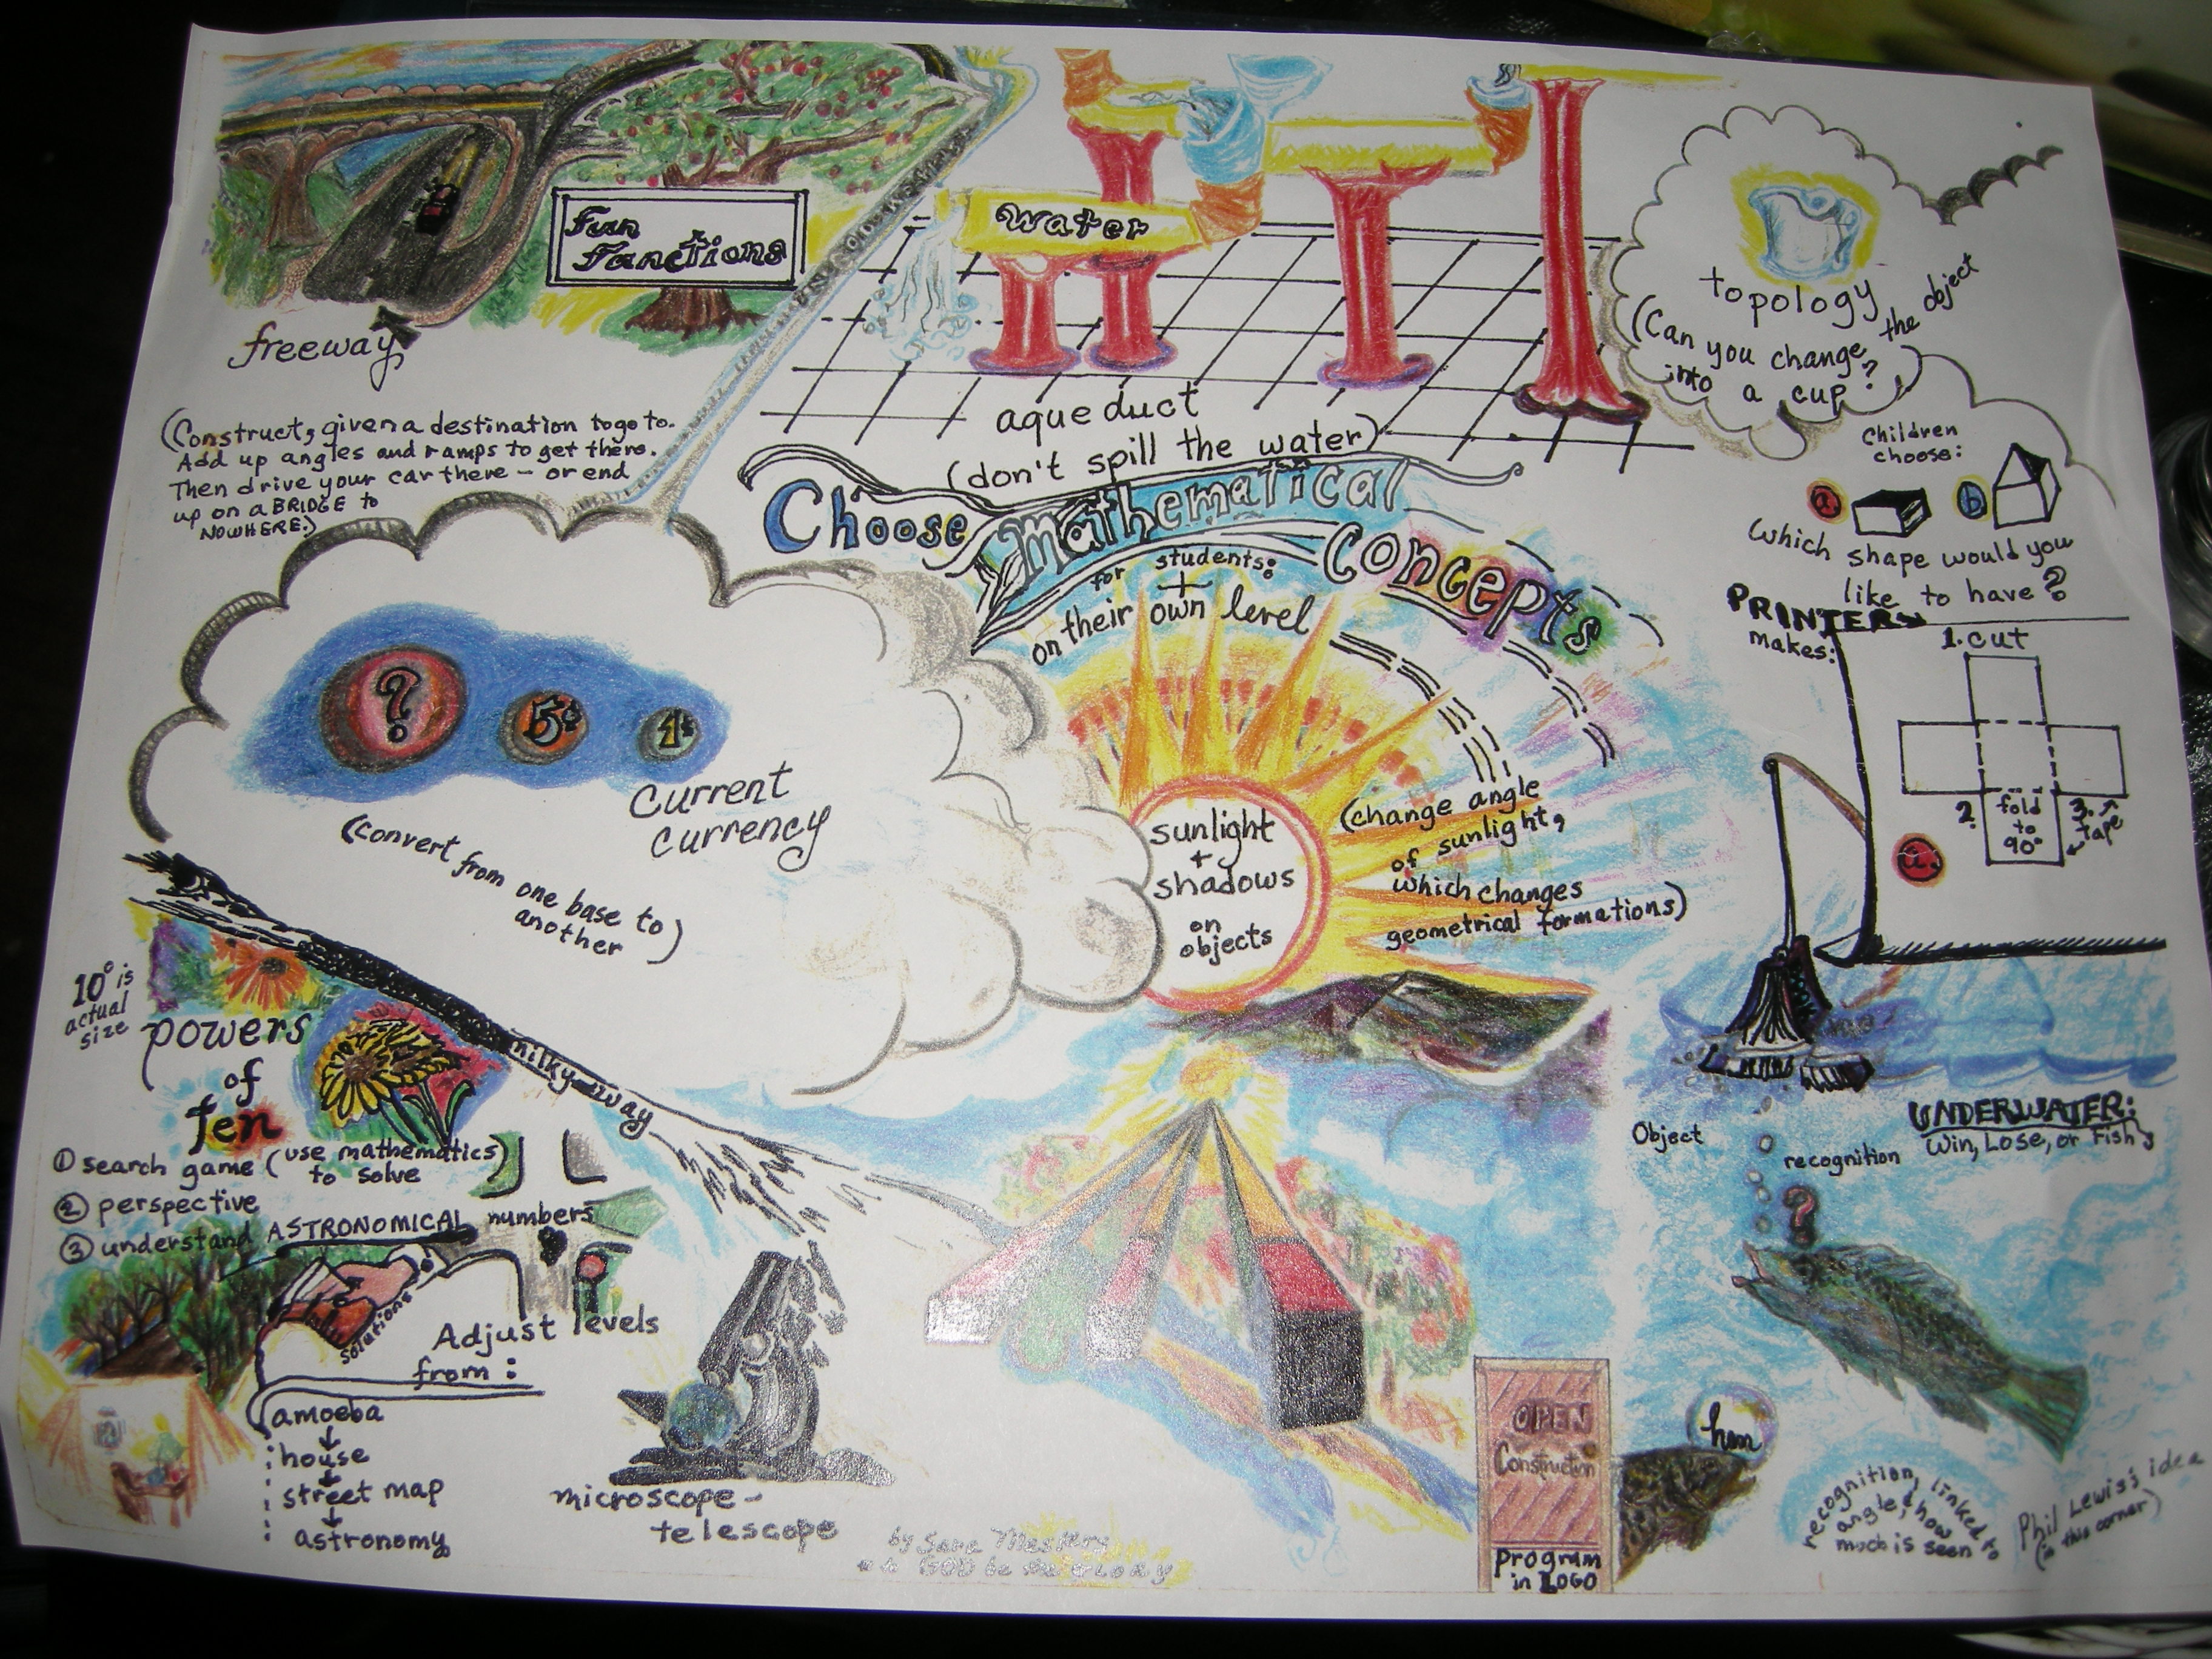 Fun
Functions
freeway
(Construct, given a destination to go to.
Add up angles and ramps to get there.
Then drive your car there – or end
up on a BRIDGE to
NOWHERE.)
water
aqueduct
(don't spill the water)
topology
(Can you change the object
into a cup?)
Children
choose:
a b
(which shape would you
like to have?
PRINTER
makes:
1. cut
2. fold
to
90°
3. tape
a.
Choose Mathematical Concepts
for students:
+
on their own level
? 5¢ 1¢
Current
Currency
(convert from one base to
another)
sunlight
+
shadows
on
objects
(change angle
of sunlight,
which changes
geometrical formations)
10° is
actual
size
powers
of
Ten
milky way
① search game (use mathematics)
to solve
② perspective
③ understand ASTRONOMICAL numbers
solutions
Adjust levels
from:
amoeba
house
street map
astronomy
microscope –
telescope
by Sara
GOD be the GLORY
OPEN
Construction
Program
in LOGO
UNDERWATER:
Win, Lose, or Fish
Object
recognition
?
hmm
recognition, linked to
angle, & how
much is seen
Phil Lewis's idea
(in this corner)